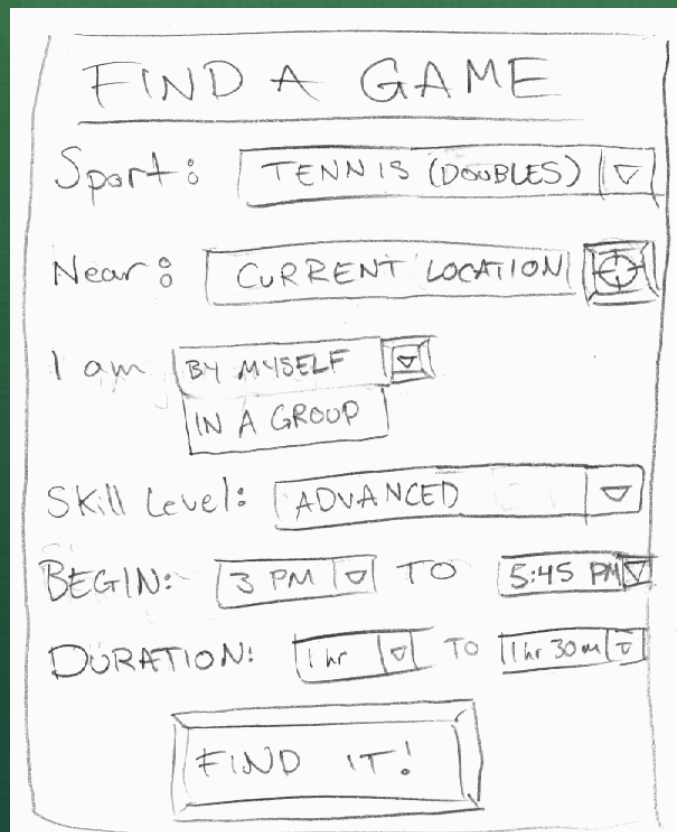 FIND A GAME
Sport: TENNIS (DOUBLES)
Near: CURRENT LOCATION
I am BY MYSELF
IN A GROUP
Skill Level: ADVANCED
BEGIN: 3 PM TO 5:45 PM
DURATION: 1 hr TO 1 hr 30 m
FIND IT!